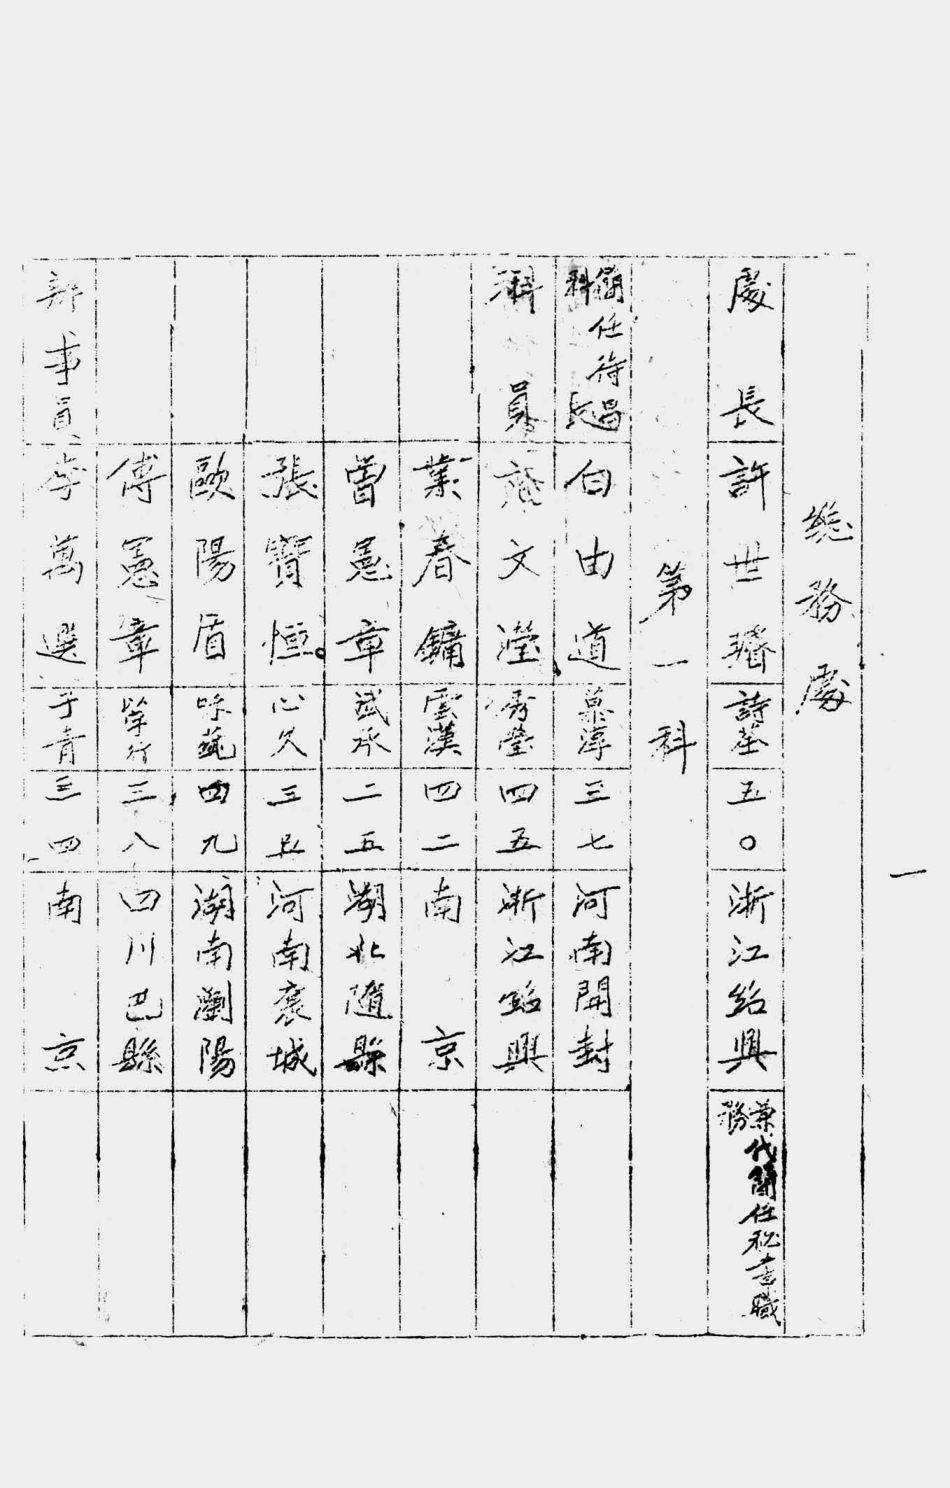 一
總務處
處長 許世璿 詩荃 五〇 浙江紹興 兼代簡任秘書職務
第一科
簡任待遇科長 白由道 慕淳 三七 河南開封
科員 文瀅 秀瑩 四五 浙江紹興
葉春鏞 雲漢 四二 南京
曾憲章 斌承 二五 湖北隨縣
張寶恒 心久 三五 河南襄城
歐陽盾 四九 湖南瀏陽
傅憲章 三八 四川巴縣
辦事員 李萬選 子青 三四 南京